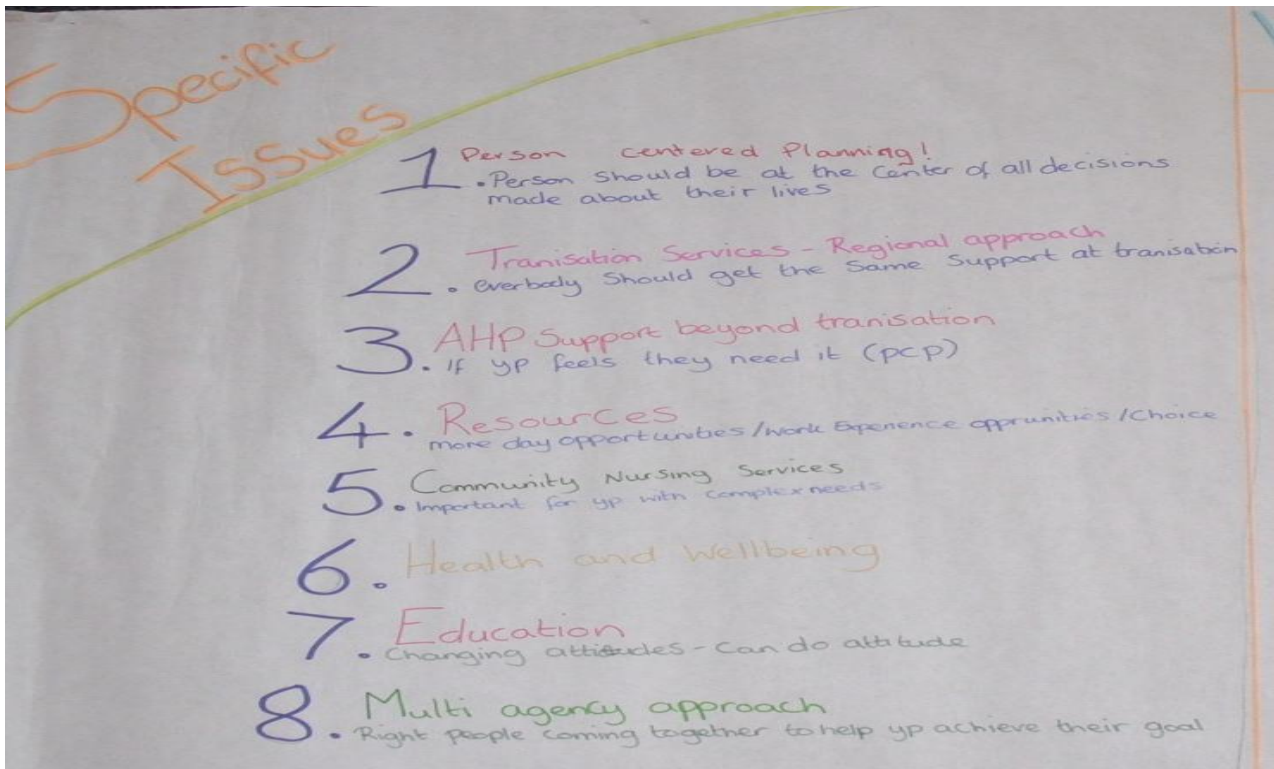 Specific
Issues
1 Person Centered Planning!
. Person Should be at the Center of all decisions
made about their lives
2 Tranisation Services - Regional approach
. everbody Should get the Same Support at tranisation
3 AHP Support beyond tranisation
. If yp feels they need it (pcp)
4. Resources
more day opportunities / work Experience opprunities / Choice
5 Community Nursing Services
. Important for yp with complex needs
6. Health and Wellbeing
7 Education
. Changing attitudes - Can do attitude
8 Multi agency approach
. Right people coming together to help yp achieve their goal